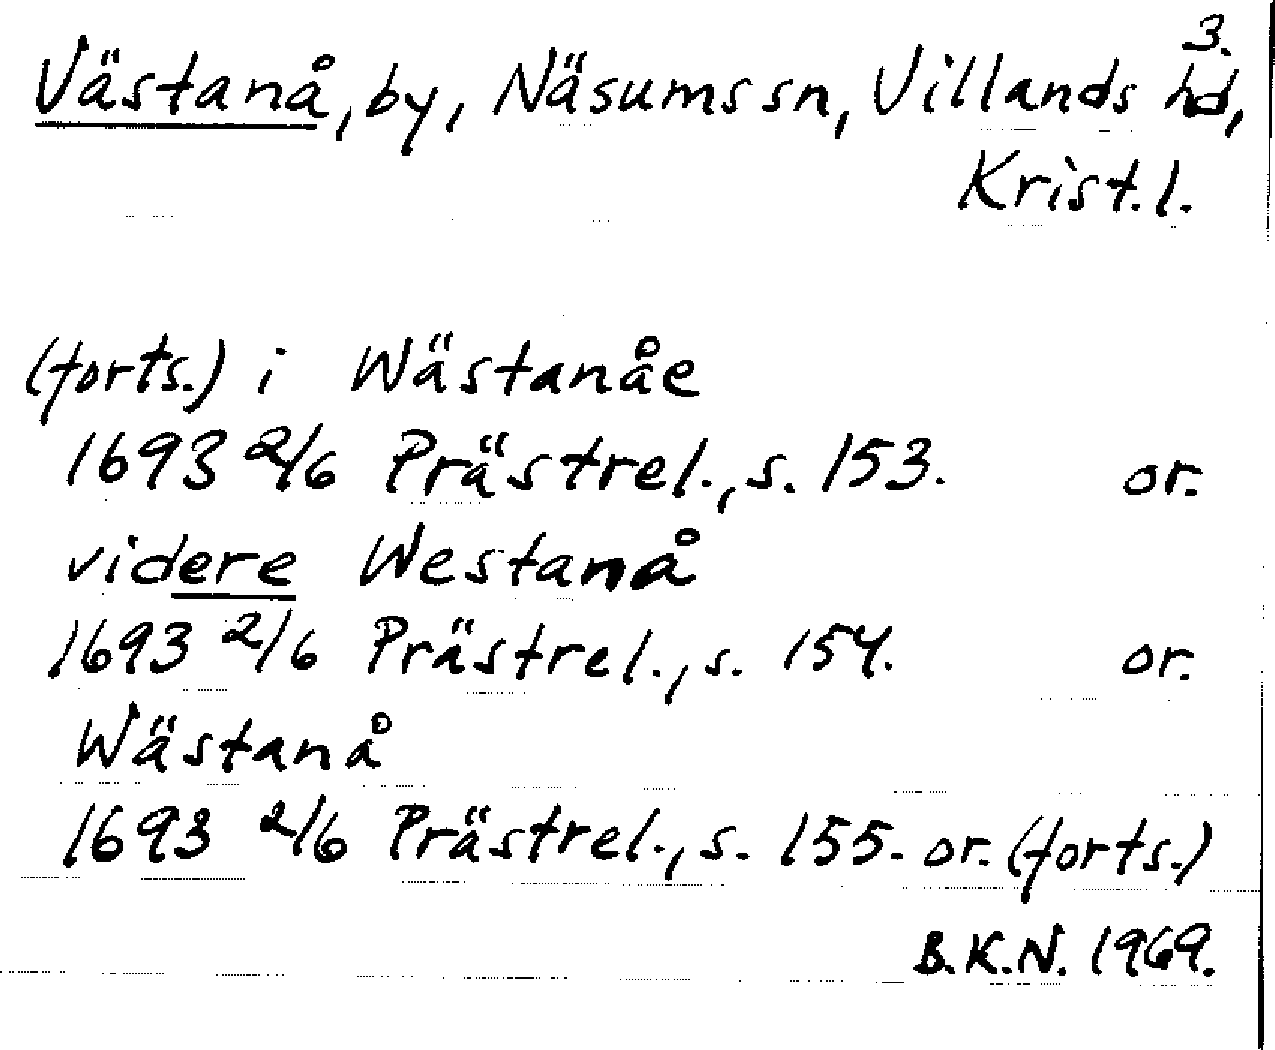 3.
Västanå, by, Näsums sn, Villands hd,
Krist. l.
(forts.) i Wästanåe
1693 2/6 Prästrel., s. 153. or.
videre Westanå
1693 2/6 Prästrel., s. 154. or.
Wästanå
1693 2/6 Prästrel., s. 155. or. (forts.)
B.K.N. 1969.